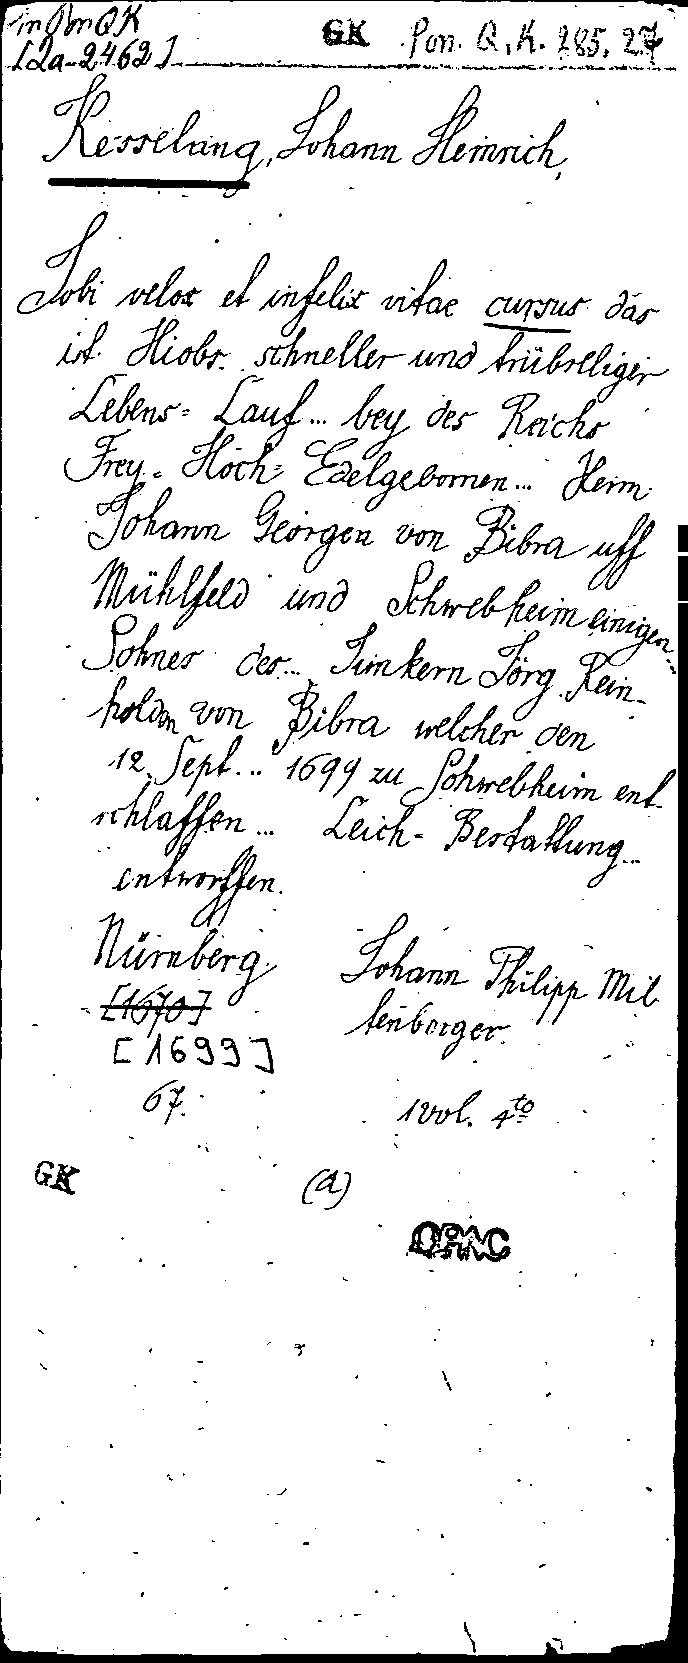 in Pon QK
[2a-2462]
GK Pon. Q. K. 285, 27
Kesselring, Johann Heinrich,
Jobi velox et infelix vitae cursus das
ist. Hiobs. schneller und trübseliger
Lebens= Lauf... bey des Reichs
Frey= Hoch= Edelgebornen... Herrn
Johann Georgen von Bibra uff
Mühlfeld und Schwebheim einigen...
Sohnes des... Junkern Jörg Rein-
holden von Bibra welcher den
12. Sept... 1699 zu Schwebheim ent-
schlaffen... Leich= Bestattung...
entworffen.
Nürnberg. Johann Philipp Mil
[1670] tenberger.
[1699]
67. 1 vol. 4to
GK (a)
OPAC